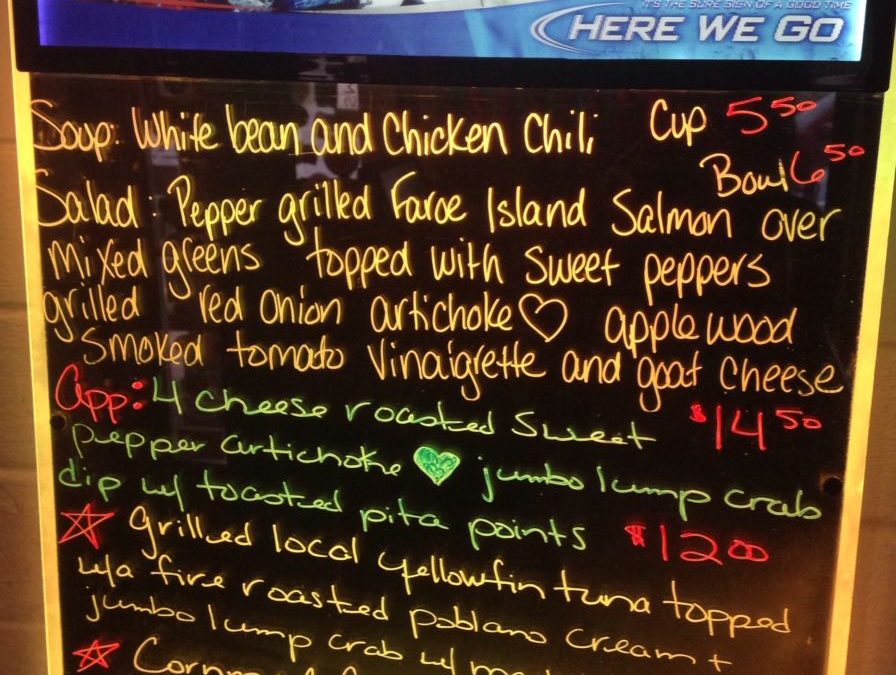 IT'S THE SURE SIGN OF A GOOD TIME
HERE WE GO
Soup: White bean and Chicken Chili Cup 5 50
Bowl 6 50
Salad: Pepper grilled Faroe Island Salmon over
mixed greens topped with sweet peppers
grilled red onion artichoke♡ applewood
smoked tomato vinaigrette and goat cheese
App: 4 cheese roasted sweet $14 50
pepper artichoke ♥ jumbo lump crab
dip w/ toasted pita points $12 00
☆ Grilled local yellowfin tuna topped
w/a fire roasted poblano cream +
jumbo lump crab w/
☆